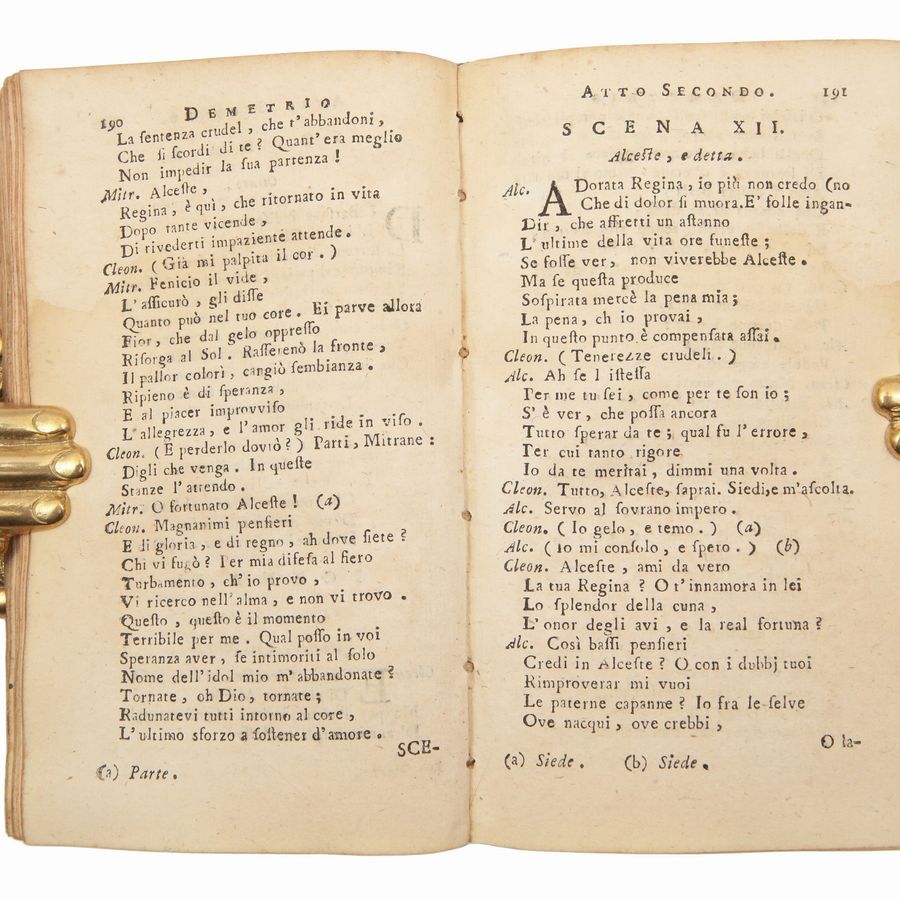 190 DEMETRIO
La ſentenza crudel, che t'abbandoni,
Che ſi ſcordi di te? Quant' era meglio
Non impedir la ſua partenza!
Mitr. Alceſte,
Regina, è quì, che ritornato in vita
Dopo tante vicende,
Di rivederti impaziente attende.
Cleon. (Già mi palpita il cor.)
Mitr. Fenicio il vide,
L'aſſicurò, gli diſſe
Quanto può nel tuo core. Ei parve allora
Fior, che dal gelo oppreſſo
Riſorga al Sol. Raſſerenò la fronte,
Il pallor colorì, cangiò ſembianza.
Ripieno è di ſperanza,
E al piacer improvviſo
L'allegrezza, e l'amor gli ride in viſo.
Cleon. (E perderlo dovrò?) Parti, Mitrane:
Digli che venga. In queſte
Stanze l'attendo.
Mitr. O fortunato Alceſte! (a)
Cleon. Magnanimi penſieri
E di gloria, e di regno, ah dove ſiete?
Chi vi fugò? Per mia difeſa al fiero
Turbamento, ch'io provo,
Vi ricerco nell'alma, e non vi trovo.
Queſto, queſto è il momento
Terribile per me. Qual poſſo in voi
Speranza aver, ſe intimoriti al ſolo
Nome dell'idol mio m'abbandonate?
Tornate, oh Dio, tornate;
Radunatevi tutti intorno al core,
L'ultimo sforzo a ſoſtener d'amore.
SCE-
(a) Parte.
ATTO SECONDO. 191
SCENA XII.
Alceſte, e detta.
Alc. ADorata Regina, io più non credo (no
Che di dolor ſi muora. E' folle ingan-
Dir, che affretti un aſtanno
L'ultime della vita ore funeſte;
Se foſſe ver, non viverebbe Alceſte.
Ma ſe queſta produce
Soſpirata mercè la pena mia;
La pena, ch io provai,
In queſto punto è compenſata aſſai.
Cleon. (Tenerezze crudeli.)
Alc. Ah ſe l iſteſſa
Per me tu ſei, come per te ſon io;
S' è ver, che poſſa ancora
Tutto ſperar da te; qual fu l'errore,
Per cui tanto rigore
Io da te meritai, dimmi una volta.
Cleon. Tutto, Alceſte, ſaprai. Siedi, e m'aſcolta.
Alc. Servo al ſovrano impero.
Cleon. (Io gelo, e temo.) (a)
Alc. (Io mi conſolo, e ſpero.) (b)
Cleon. Alceſte, ami da vero
La tua Regina? O t'innamora in lei
Lo ſplendor della cuna,
L'onor degli avi, e la real fortuna?
Alc. Così baſſi penſieri
Credi in Alceſte? O con i dubbj tuoi
Rimproverar mi vuoi
Le paterne capanne? Io fra le ſelve
Ove nacqui, ove crebbi,
O la-
(a) Siede. (b) Siede.